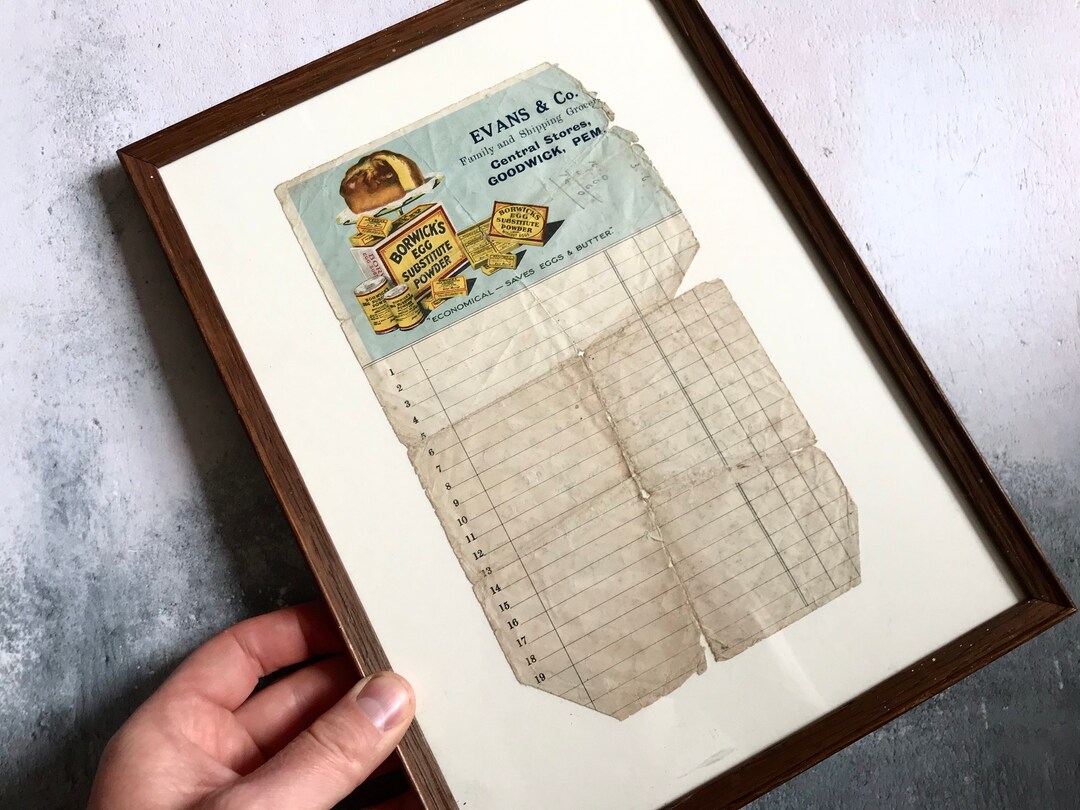 EVANS & Co.
Family and Shipping Grocers
Central Stores,
GOODWICK, PEM.
BORWICK'S
EGG
SUBSTITUTE
POWDER
BORWICK'S
EGG
SUBSTITUTE
POWDER
"ECONOMICAL — SAVES EGGS & BUTTER."
1
2
3
4
5
6
7
8
9
10
11
12
13
14
15
16
17
18
19